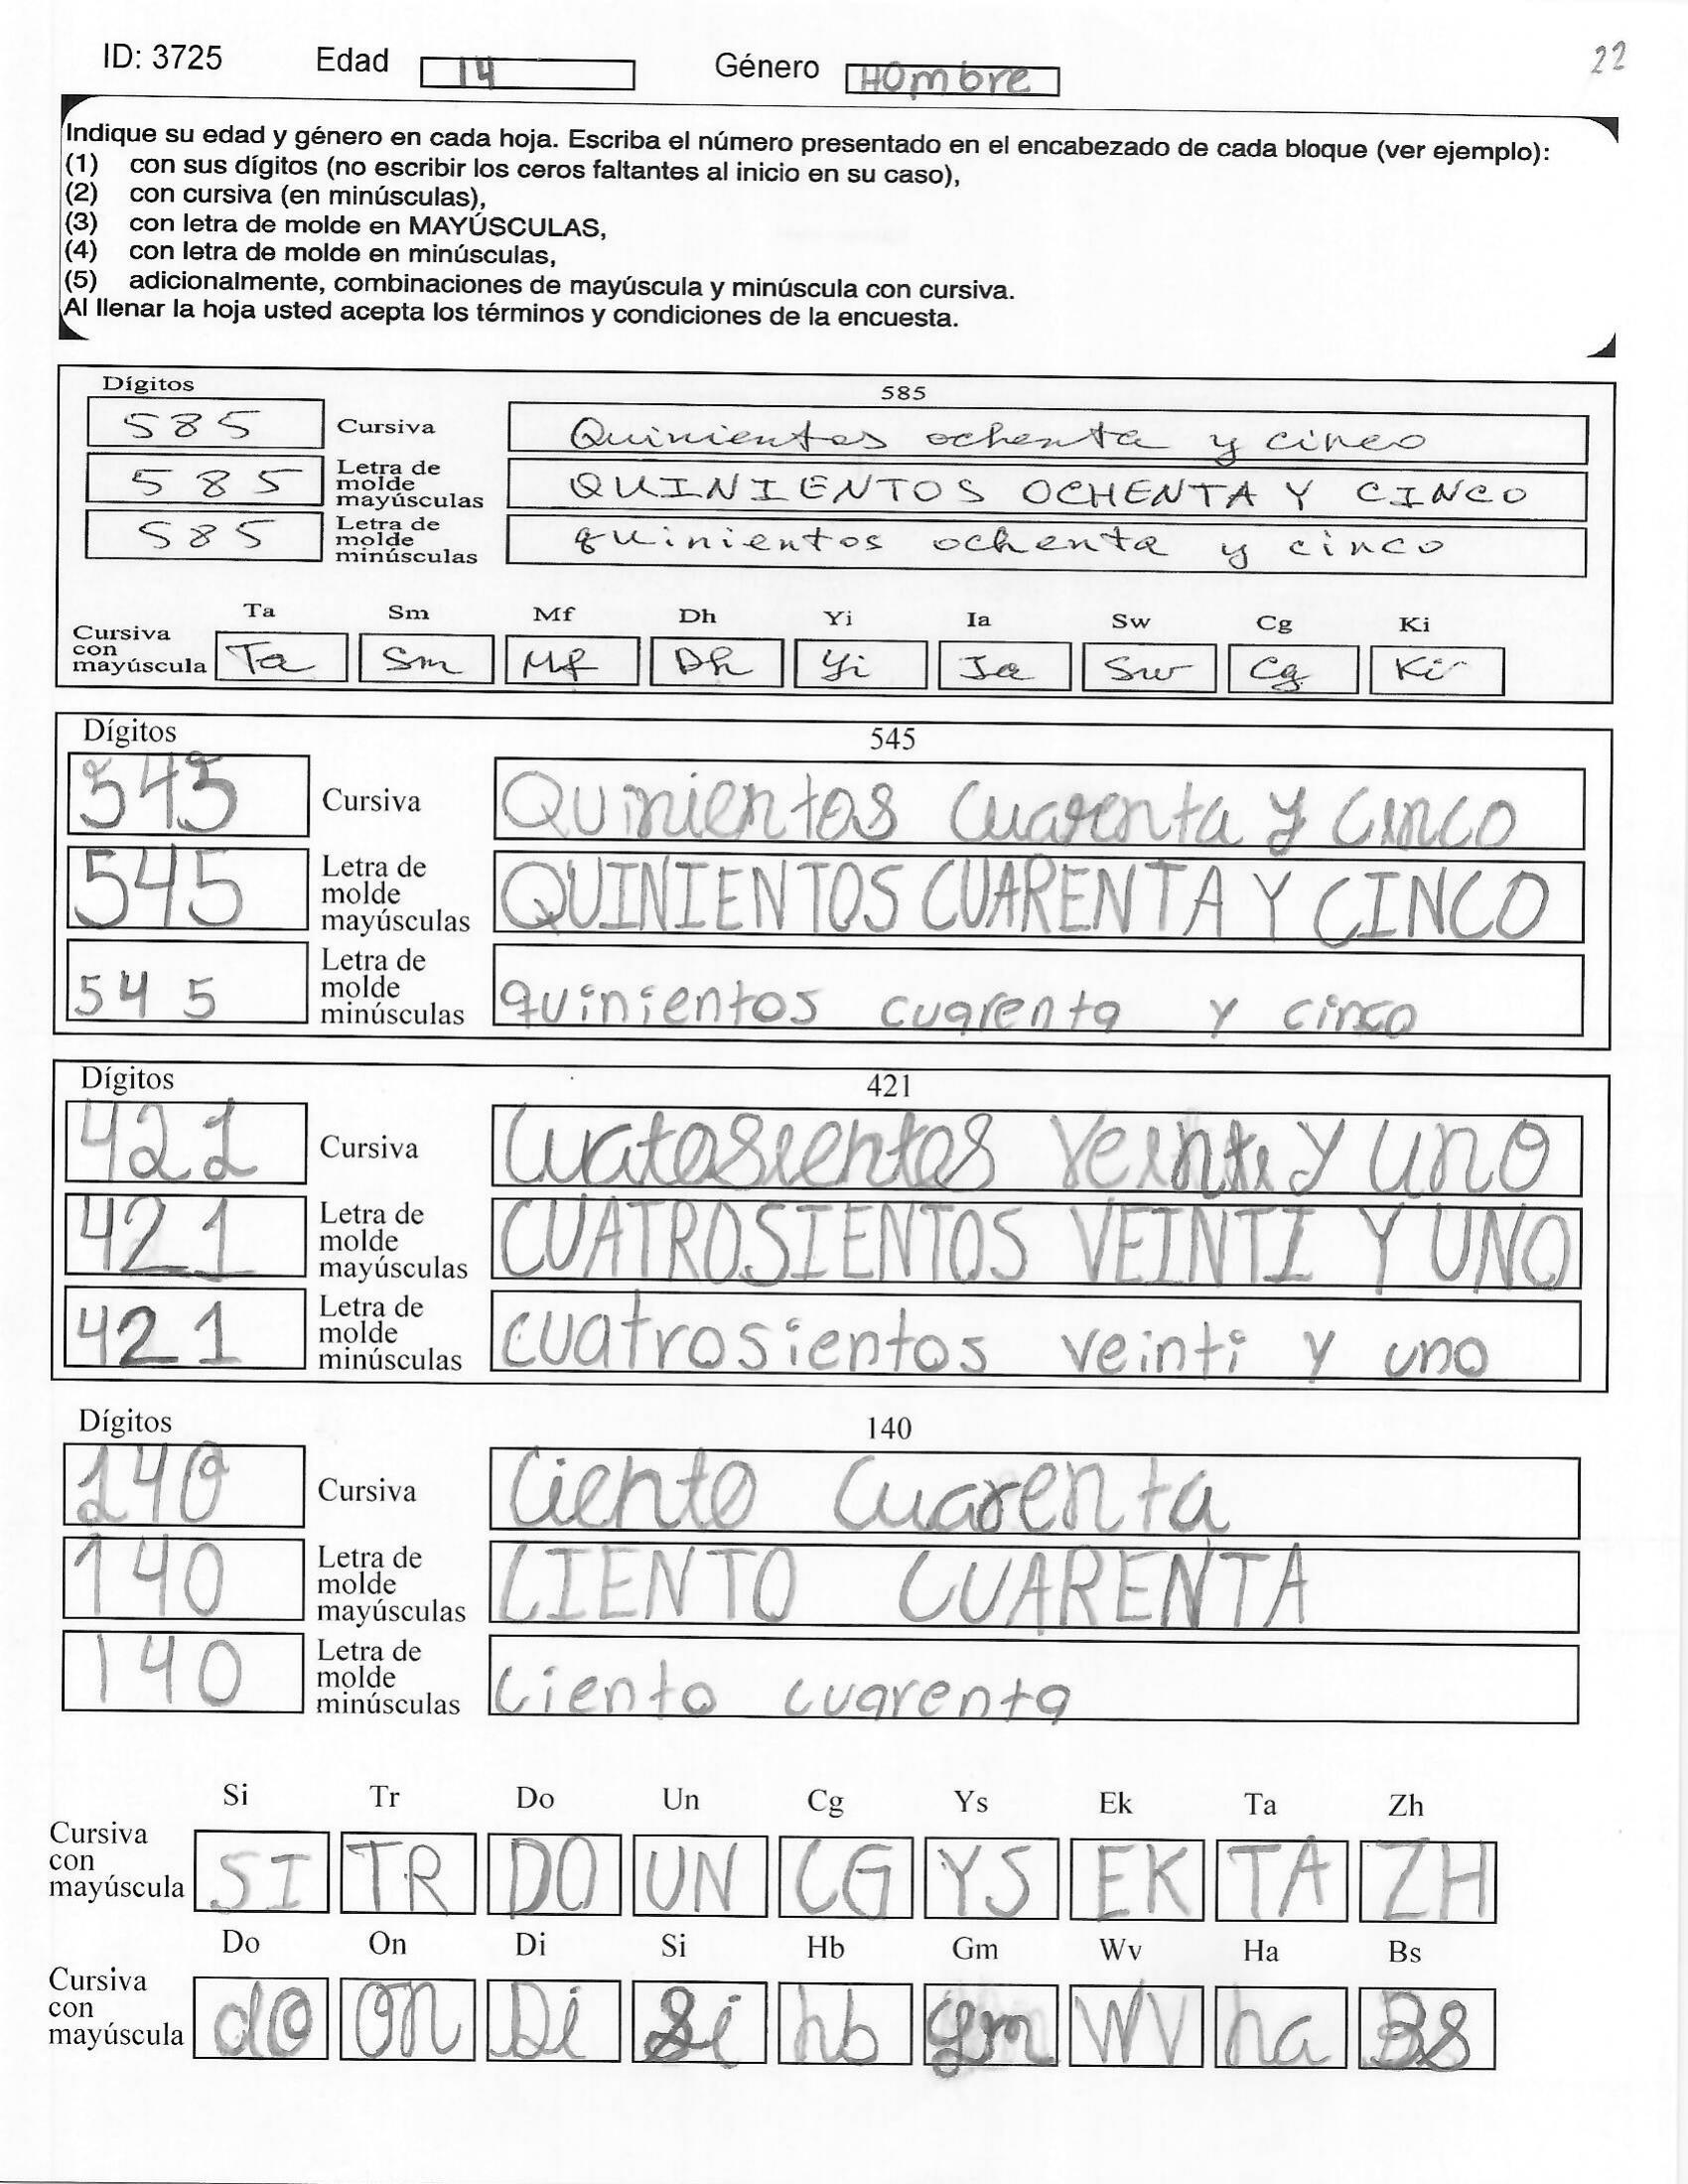 ID: 3725 Edad 14 Género HOmbre 22
Indique su edad y género en cada hoja. Escriba el número presentado en el encabezado de cada bloque (ver ejemplo):
(1) con sus dígitos (no escribir los ceros faltantes al inicio en su caso),
(2) con cursiva (en minúsculas),
(3) con letra de molde en MAYÚSCULAS,
(4) con letra de molde en minúsculas,
(5) adicionalmente, combinaciones de mayúscula y minúscula con cursiva.
Al llenar la hoja usted acepta los términos y condiciones de la encuesta.
Dígitos 585
585 Cursiva Quinientos ochenta y cinco
585 Letra de molde mayúsculas QUINIENTOS OCHENTA Y CINCO
585 Letra de molde minúsculas quinientos ochenta y cinco
Ta Sm Mf Dh Yi Ia Sw Cg Ki
Cursiva con mayúscula Ta Sm Mf Dh Yi Ia Sw Cg Ki
Dígitos 545
545 Cursiva Quinientos cuarenta y cinco
545 Letra de molde mayúsculas QUINIENTOS CUARENTA Y CINCO
545 Letra de molde minúsculas quinientos cuarenta y cinco
Dígitos 421
421 Cursiva Cuatosientos veinti y uno
421 Letra de molde mayúsculas CUATROSIENTOS VEINTI Y UNO
421 Letra de molde minúsculas cuatrosientos veinti y uno
Dígitos 140
140 Cursiva Ciento Cuarenta
140 Letra de molde mayúsculas CIENTO CUARENTA
140 Letra de molde minúsculas ciento cuarenta
Si Tr Do Un Cg Ys Ek Ta Zh
Cursiva con mayúscula SI TR DO UN CG YS EK TA ZH
Do On Di Si Hb Gm Wv Ha Bs
Cursiva con mayúscula do On Di Si hb gm WV ha BS